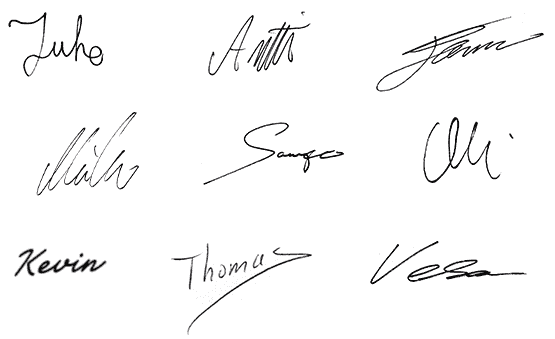 Juho Antti
Sampo Olli
Kevin Thomas Vesa